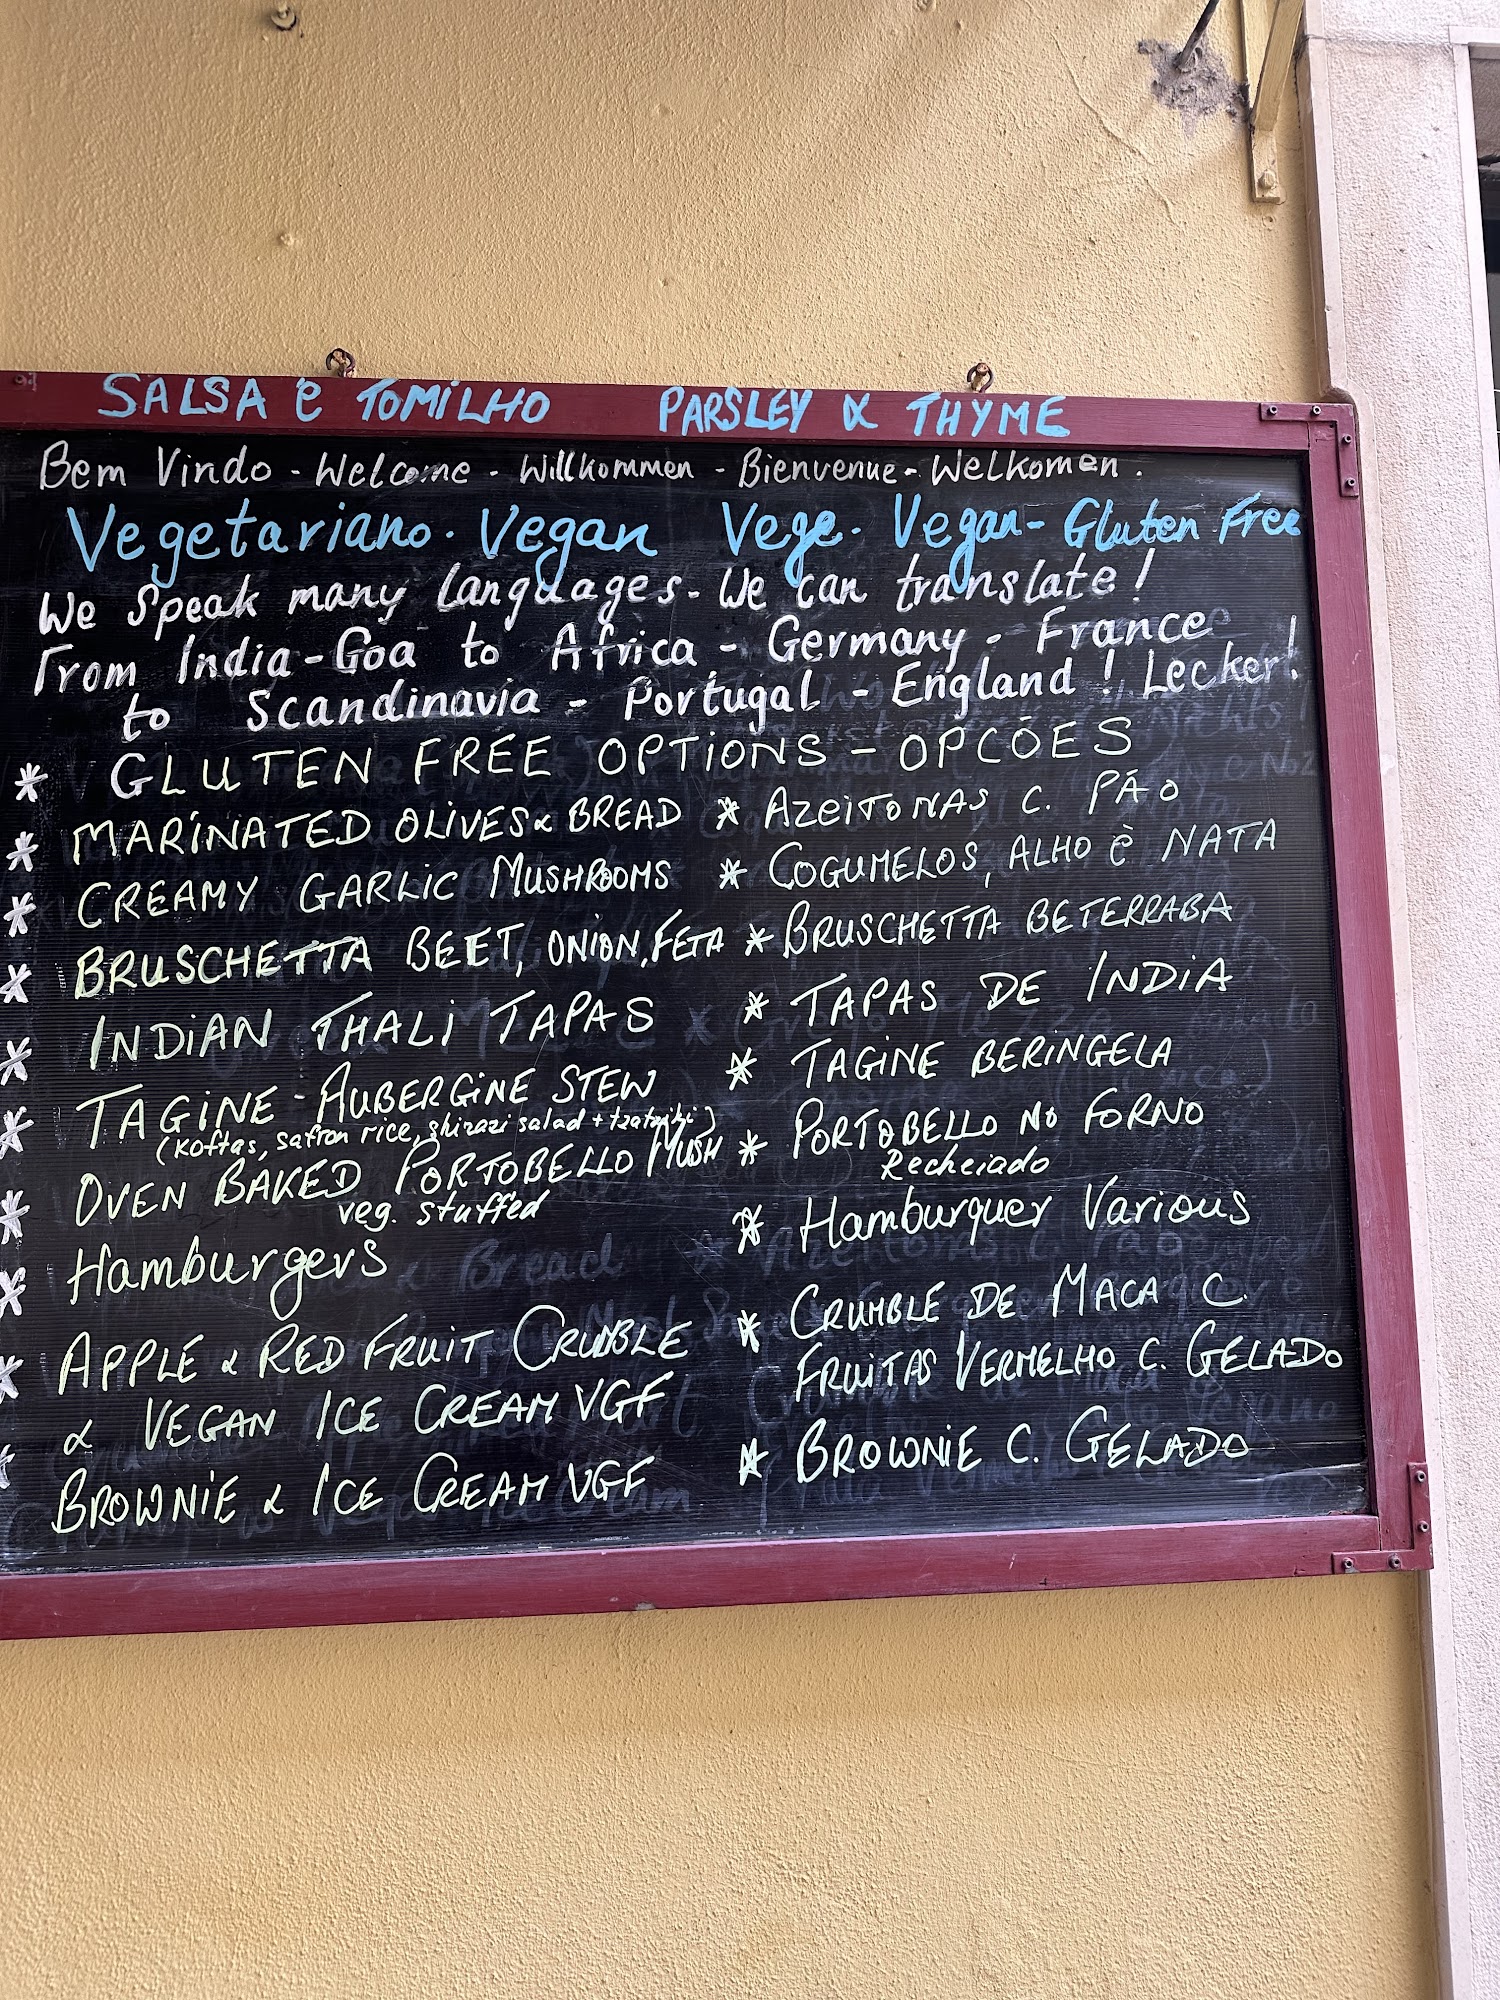 SALSA e TOMILHO PARSLEY & THYME
Bem Vindo - Welcome - Willkommen - Bienvenue - Welkomen.
Vegetariano. Vegan Vege. Vegan - Gluten Free
We Speak many languages. We can translate!
From India - Goa to Africa - Germany - France
to Scandinavia - Portugal - England! Lecker!
* GLUTEN FREE OPTIONS - OPCÕES
* MARINATED OLIVES & BREAD * AZEITONAS C. PÃO
* CREAMY GARLIC MUSHROOMS * COGUMELOS, ALHO È NATA
* BRUSCHETTA BEET, ONION, FETA * BRUSCHETTA BETERRABA
* INDIAN THALI TAPAS * TAPAS DE INDIA
* TAGINE - AUBERGINE STEW * TAGINE BERINGELA
(Koftas, safron rice, shirazi salad + tzatziki)
* OVEN BAKED PORTOBELLO MUSH * PORTOBELLO NO FORNO
veg. stuffed Recheiado
* Hamburgers * Hamburguer Various
* APPLE & RED FRUIT CRUMBLE * CRUMBLE DE MACA C.
& VEGAN ICE CREAM VGF FRUITAS VERMELHO C. GELADO
* BROWNIE & ICE CREAM VGF * BROWNIE C. GELADO